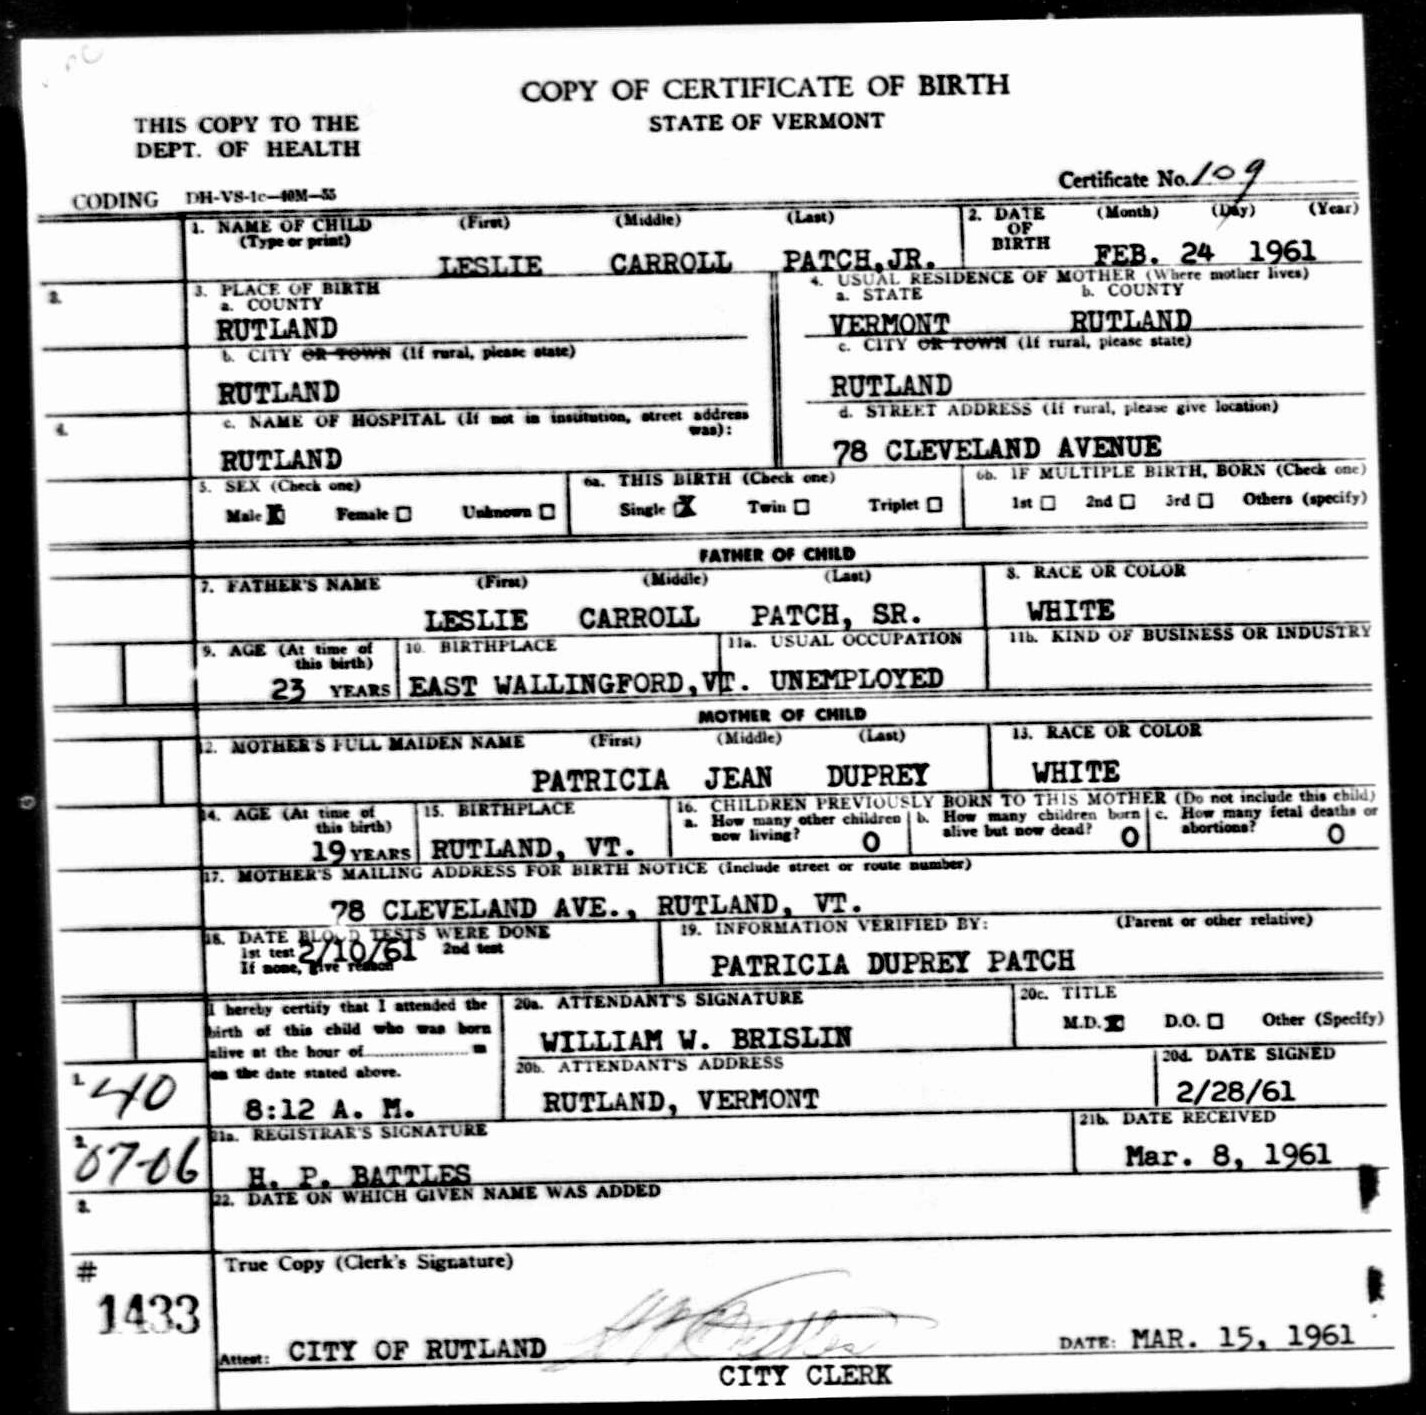 COPY OF CERTIFICATE OF BIRTH
STATE OF VERMONT
THIS COPY TO THE
DEPT. OF HEALTH
Certificate No. 109
CODING DH-VS-1c—40M—55
1. NAME OF CHILD (First) (Middle) (Last)
(Type or print)
LESLIE CARROLL PATCH, JR.
2. DATE OF BIRTH (Month) (Day) (Year)
FEB. 24 1961
3. PLACE OF BIRTH
a. COUNTY
RUTLAND
b. CITY OR TOWN (If rural, please state)
RUTLAND
c. NAME OF HOSPITAL (If not in institution, street address was):
RUTLAND
4. USUAL RESIDENCE OF MOTHER (Where mother lives)
a. STATE b. COUNTY
VERMONT RUTLAND
c. CITY OR TOWN (If rural, please state)
RUTLAND
d. STREET ADDRESS (If rural, please give location)
78 CLEVELAND AVENUE
3.
4.
5. SEX (Check one)
Male Female Unknown
6a. THIS BIRTH (Check one)
Single X Twin Triplet
6b. IF MULTIPLE BIRTH, BORN (Check one)
1st 2nd 3rd Others (specify)
FATHER OF CHILD
7. FATHER'S NAME (First) (Middle) (Last)
LESLIE CARROLL PATCH, SR.
8. RACE OR COLOR
WHITE
9. AGE (At time of this birth)
23 YEARS
10. BIRTHPLACE
EAST WALLINGFORD, VT.
11a. USUAL OCCUPATION
UNEMPLOYED
11b. KIND OF BUSINESS OR INDUSTRY
MOTHER OF CHILD
12. MOTHER'S FULL MAIDEN NAME (First) (Middle) (Last)
PATRICIA JEAN DUPREY
13. RACE OR COLOR
WHITE
14. AGE (At time of this birth)
19 YEARS
15. BIRTHPLACE
RUTLAND, VT.
16. CHILDREN PREVIOUSLY BORN TO THIS MOTHER (Do not include this child)
a. How many other children now living? 0
b. How many children born alive but now dead? 0
c. How many fetal deaths or abortions? 0
17. MOTHER'S MAILING ADDRESS FOR BIRTH NOTICE (Include street or route number)
78 CLEVELAND AVE., RUTLAND, VT.
18. DATE BLOOD TESTS WERE DONE
1st test 2/10/61 2nd test
If none, give reason
19. INFORMATION VERIFIED BY: (Parent or other relative)
PATRICIA DUPREY PATCH
I hereby certify that I attended the
birth of this child who was born
alive at the hour of.................... m
on the date stated above.
8:12 A. M.
20a. ATTENDANT'S SIGNATURE
WILLIAM W. BRISLIN
20c. TITLE
M.D. D.O. Other (Specify)
20b. ATTENDANT'S ADDRESS
RUTLAND, VERMONT
20d. DATE SIGNED
2/28/61
1. 40
2. 07-06
3.
21a. REGISTRAR'S SIGNATURE
H. P. BATTLES
21b. DATE RECEIVED
Mar. 8, 1961
22. DATE ON WHICH GIVEN NAME WAS ADDED
#
1433
True Copy (Clerk's Signature)
Attest: CITY OF RUTLAND
CITY CLERK
DATE: MAR. 15, 1961